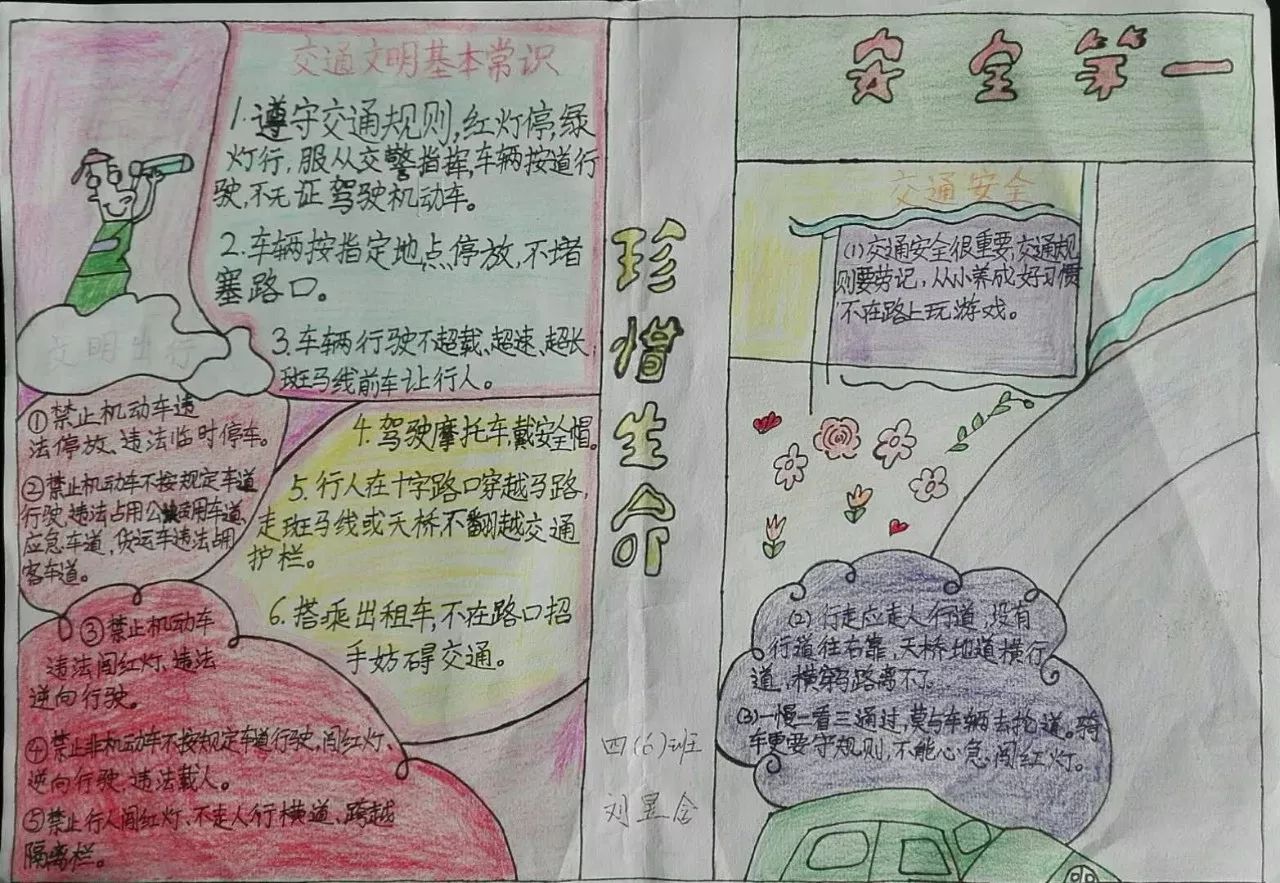 交通文明基本常识
1.遵守交通规则,红灯停,绿
灯行,服从交警指挥,车辆按道行
驶,不无证驾驶机动车。
2.车辆按指定地点停放,不堵
塞路口。
3.车辆行驶不超载、超速、超长,
斑马线前车让行人。
4.驾驶摩托车戴安全帽。
5.行人在十字路口穿越马路,
走斑马线或天桥,不翻越交通
护栏。
6.搭乘出租车,不在路口招
手妨碍交通。
文明出行
①禁止机动车违
法停放、违法临时停车。
②禁止机动车不按规定车道
行驶,违法占用公交专用车道、
应急车道,货运车违法占用
客车道。
③禁止机动车
违法闯红灯、违法
逆向行驶。
④禁止非机动车不按规定车道行驶,闯红灯、
逆向行驶、违法载人。
⑤禁止行人闯红灯、不走人行横道、跨越
隔离栏。
珍惜生命
四(6)班
刘昱含
安全第一
交通安全
(1)交通安全很重要,交通规
则要劳记,从小养成好习惯
不在路上玩游戏。
(2)行走应走人行道,没有
行道往右靠,天桥地道横行
道,横穿马路离不了。
(3)一慢二看三通过,莫与车辆去抢道。骑
车更要守规则,不能心急闯红灯。